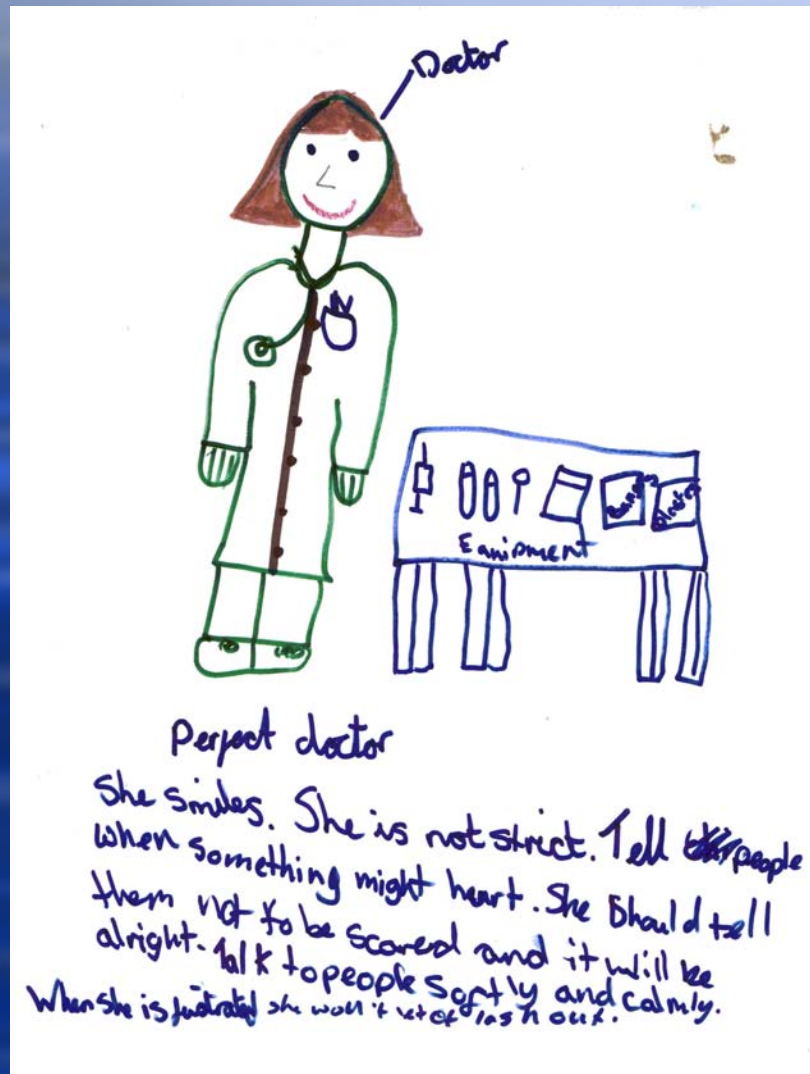 Doctor
Bandages
Plasters
Equipment
Perfect doctor
She smiles. She is not strict. Tell people
when something might heart. She Should tell
them not to be scared and it will be
alright. Talk to people softly and calmly.
When she is fustrated she won't lash out.